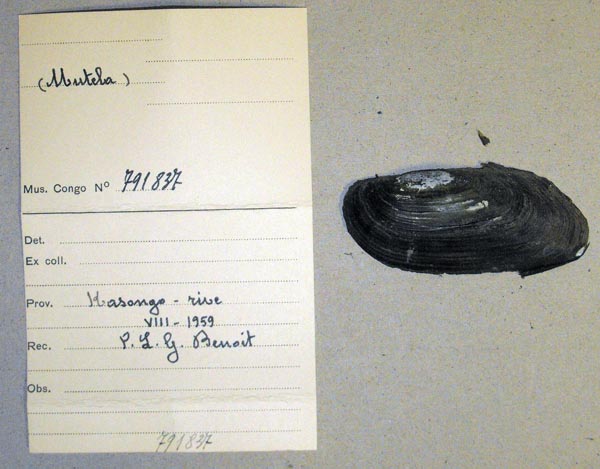 (Mutela)
Mus. Congo Nº 791837
Det.
Ex coll.
Prov. Kasongo - rive
VIII - 1959
Rec. P. L. G. Benoit
Obs.
791837